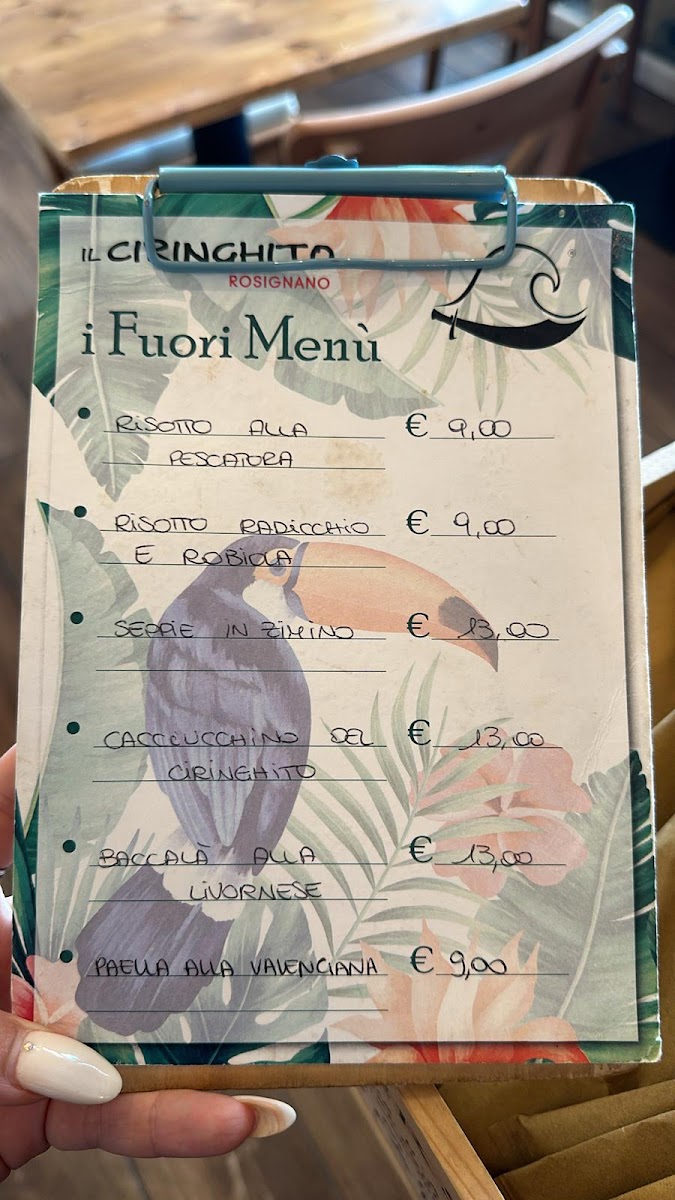 IL CIRINGHITO ®
ROSIGNANO
i Fuori Menù
• RISOTTO ALLA € 9,00
PESCATORA
• RISOTTO RADICCHIO € 9,00
E ROBIOLA
• SEPPIE IN ZIMINO € 13,00
• CACCIUCCHINO DEL € 13,00
CIRINGHITO
• BACCALÀ ALLA € 13,00
LIVORNESE
• PAELLA ALLA VALENCIANA € 9,00